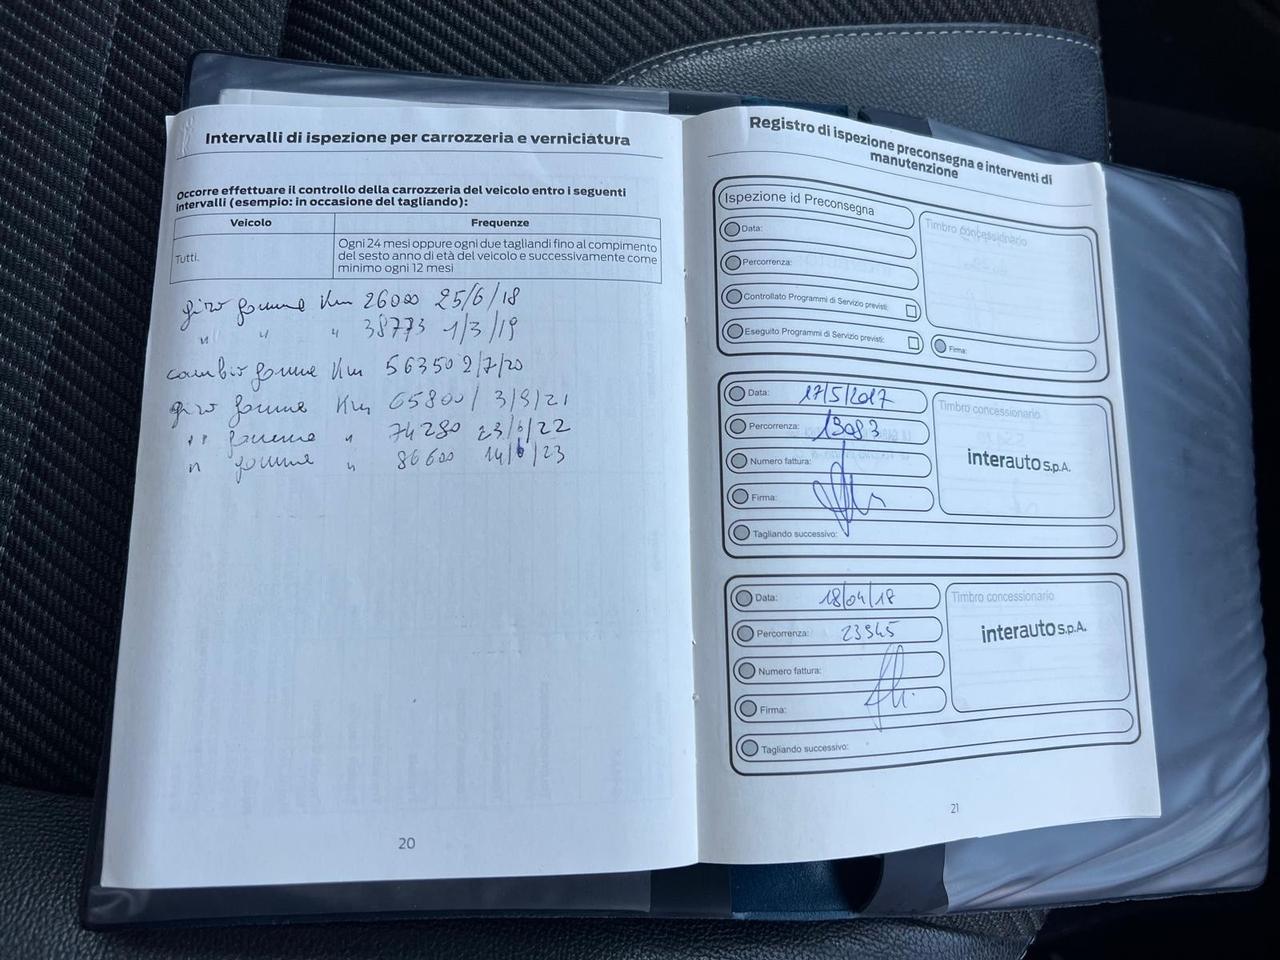 Intervalli di ispezione per carrozzeria e verniciatura
Occorre effettuare il controllo della carrozzeria del veicolo entro i seguenti
intervalli (esempio: in occasione del tagliando):
Veicolo
Frequenze
Tutti.
Ogni 24 mesi oppure ogni due tagliandi fino al compimento
del sesto anno di età del veicolo e successivamente come
minimo ogni 12 mesi
giro gomme Km 26000 25/6/18
" " " 38773 1/3/19
cambio gomme Km 56350 2/7/20
giro gomme Km 65800 / 3/9/21
" gomme " 74280 23/6/22
" gomme " 86600 14/6/23
20
Registro di ispezione preconsegna e interventi di
manutenzione
Ispezione id Preconsegna
Data:
Percorrenza:
Controllato Programmi di Servizio previsti:
Eseguito Programmi di Servizio previsti:
Timbro concessionario
Firma:
Data: 17/5/2017
Percorrenza: 13083
Numero fattura:
Firma:
Tagliando successivo:
Timbro concessionario
interauto s.p.A.
Data: 18/04/18
Percorrenza: 23945
Numero fattura:
Firma:
Tagliando successivo:
Timbro concessionario
interauto s.p.A.
21